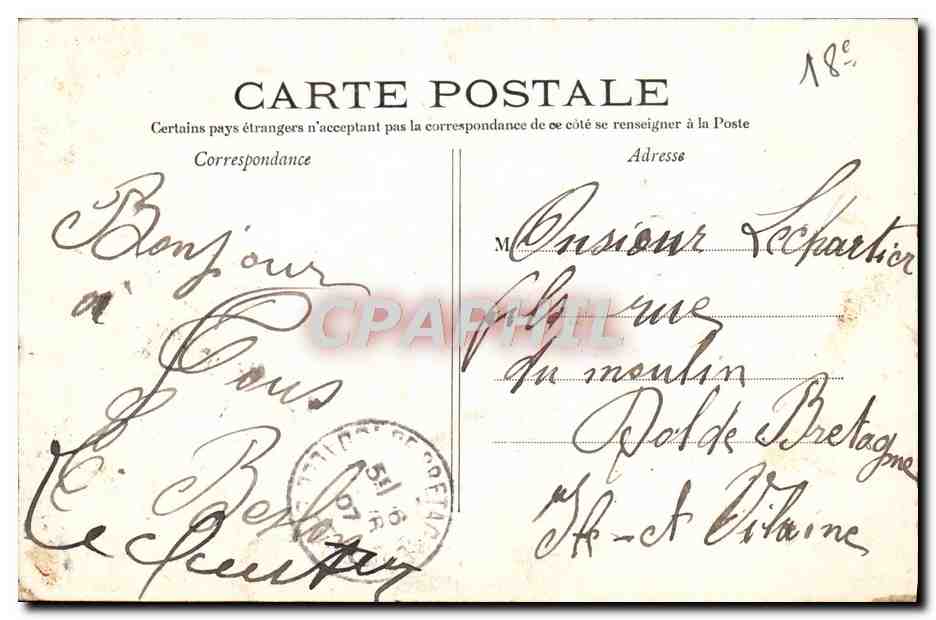 18e
CARTE POSTALE
Certains pays étrangers n'acceptant pas la correspondance de ce côté se renseigner à la Poste
Correspondance
Bonjour
a
Tous
Adresse
Monsieur Lechartier
fils rue
du moulin
Dol de Bretagne
Vilaine
DOL DE BRETAGNE
6
07
CPAPHIL